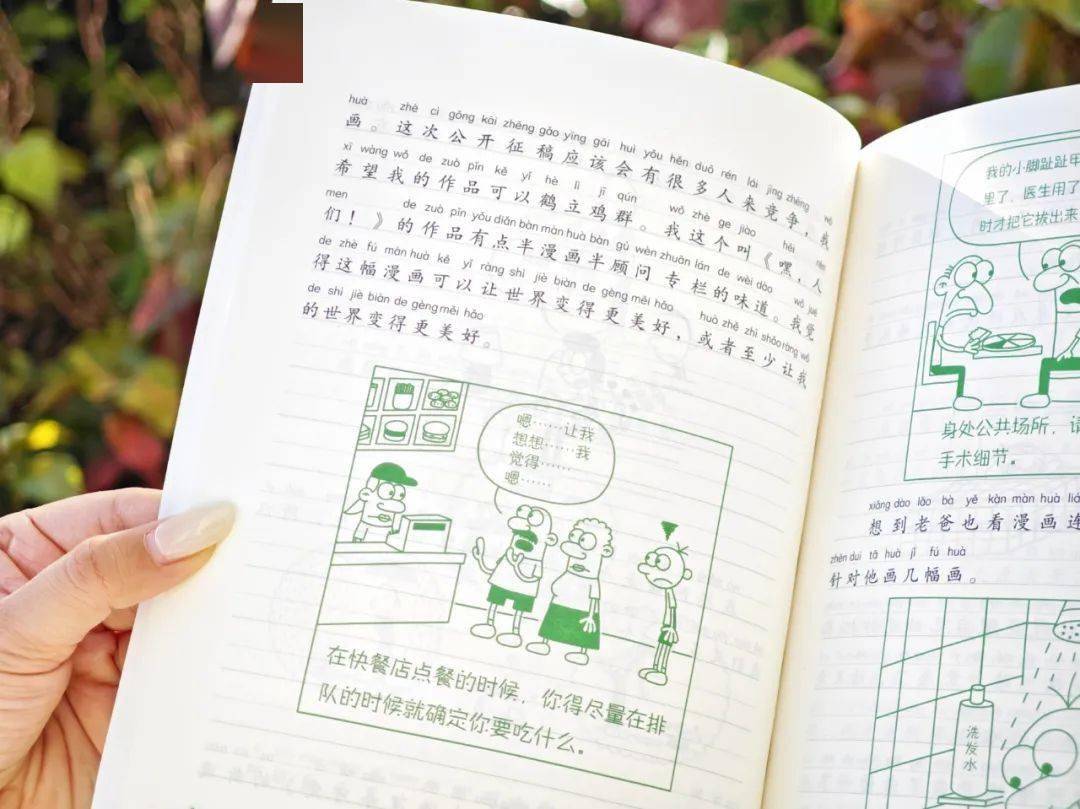 huà zhè cì gōng kāi zhēng gǎo yīng gāi huì yǒu hěn duō rén lái jìng zhēng wǒ
画。这次公开征稿应该会有很多人来竞争，我
xī wàng wǒ de zuò pǐn kě yǐ hè lì jī qún wǒ zhè ge jiào hēi rén
希望我的作品可以鹤立鸡群。我这个叫《嘿，人
men de zuò pǐn yǒu diǎn bàn màn huà bàn gù wèn zhuān lán de wèi dào wǒ jué
们！》的作品有点半漫画半顾问专栏的味道。我觉
de zhè fú màn huà kě yǐ ràng shì jiè biàn de gèng měi hǎo huò zhě zhì shǎo ràng wǒ
得这幅漫画可以让世界变得更美好，或者至少让我
de shì jiè biàn de gèng měi hǎo
的世界变得更美好。
嗯……让我
想想……我
觉得……
嗯……
在快餐店点餐的时候，你得尽量在排
队的时候就确定你要吃什么。
我的小脚趾趾甲
里了，医生用了
时才把它拔出来
身处公共场所，请
手术细节。
xiǎng dào lǎo bà yě kàn màn huà lián
想到老爸也看漫画连
zhēn duì tā huà jǐ fú huà
针对他画几幅画。
洗发水